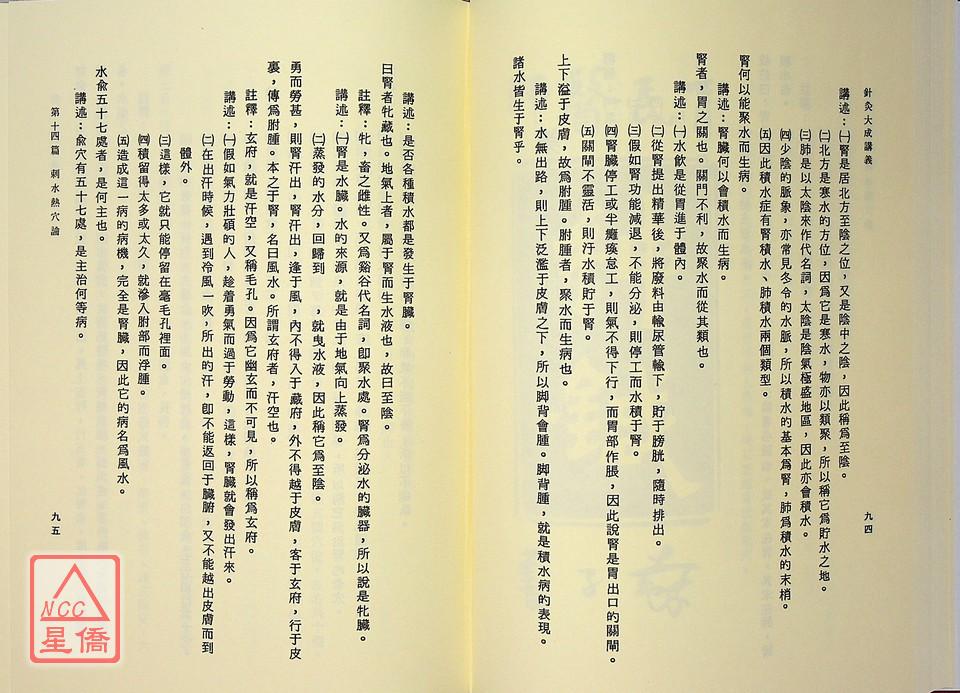 針灸大成講義
九四
講述:㈠腎是居北方至陰之位,又是陰中之陰,因此稱爲至陰。
㈡北方是寒水的方位,因爲它是寒水,物亦以類聚,所以稱它爲貯水之地。
㈢肺是以太陰來作代名詞,太陰是陰氣極盛地區,因此亦會積水。
㈣少陰的脈象,亦常見冬令的水脈,所以積水的基本爲腎,肺爲積水的末梢。
㈤因此積水症有腎積水、肺積水兩個類型。
腎何以能聚水而生病。
講述:腎臟何以會積水而生病。
腎者,胃之關也。關門不利,故聚水而從其類也。
講述:㈠水飲是從胃進于體內。
㈡從腎提出精華後,將廢料由輸尿管輸下,貯于膀胱,隨時排出。
㈢假如腎功能減退,不能分泌,則停工而水積于腎。
㈣腎臟停工或半癱瘓怠工,則氣不得下行,而胃部作脹,因此說腎是胃出口的關閘。
㈤關閘不靈活,則汙水積貯于腎。
上下溢于皮膚,故爲胕腫。胕腫者,聚水而生病也。
講述:水無出路,則上下泛濫于皮膚之下,所以脚背會腫。脚背腫,就是積水病的表現。
諸水皆生于腎乎。
講述:是否各種積水都是發生于腎臟。
曰腎者牝藏也。地氣上者,屬于腎而生水液也,故曰至陰。
註釋:牝,畜之雌性。又爲谿谷代名詞,卽聚水處。腎爲分泌水的臟器,所以說是牝臟。
講述:㈠腎是水臟。水的來源,就是由于地氣向上蒸發。
㈡蒸發的水分,回歸到 ,就曳水液,因此稱它爲至陰。
勇而勞甚,則腎汗出,腎汗出,逢于風,內不得入于藏府,外不得越于皮膚,客于玄府,行于皮
裏,傳爲胕腫。本之于腎,名曰風水。所謂玄府者,汗空也。
註釋:玄府,就是汗空,又稱毛孔。因爲它幽玄而不可見,所以稱爲玄府。
講述:㈠假如氣力壯碩的人,趁着勇氣而過于勞動,這樣,腎臟就會發出汗來。
㈡在出汗時候,遇到冷風一吹,所出的汗,卽不能返回于臟腑,又不能越出皮膚而到
體外。
㈢這樣,它就只能停留在毫毛孔裡面。
㈣積留得太多或太久,就滲入胕部而浮腫。
㈤造成這一病的病機,完全是腎臟,因此它的病名爲風水。
水兪五十七處者,是何主也。
講述:兪穴有五十七處,是主治何等病。
第十四篇 刺水熱穴論
九五
NCC
星僑